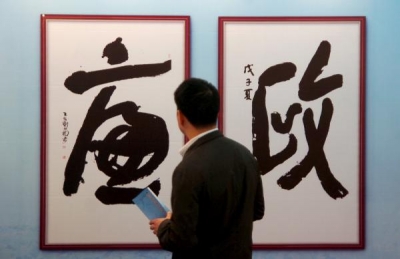 廉
戊子夏
政